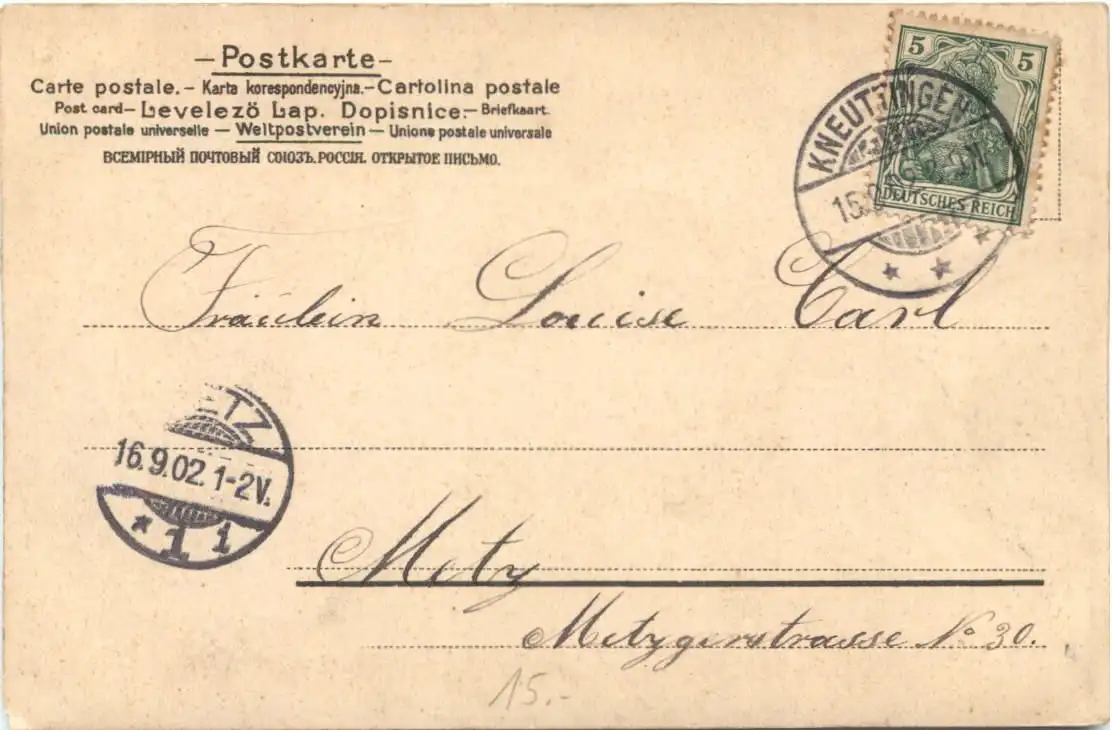 —Postkarte—
Carte postale.— Karta korespondencyjna.—Cartolina postale
Post card— Levelezö Lap. Dopisnice.— Briefkaart.
Union postale universelle — Weltpostverein — Unione postale universale
ВСЕМІРНЫЙ ПОЧТОВЫЙ СОЮЗЪ. РОССІЯ. ОТКРЫТОЕ ПИСЬМО.
5 5
DEUTSCHES REICH
KNEUTTINGEN
15.
Fräulein Louise Carl
ETZ
16.9.02. 1-2V.
* 1 1
Metz
Metzgerstrasse No 30.
15.-